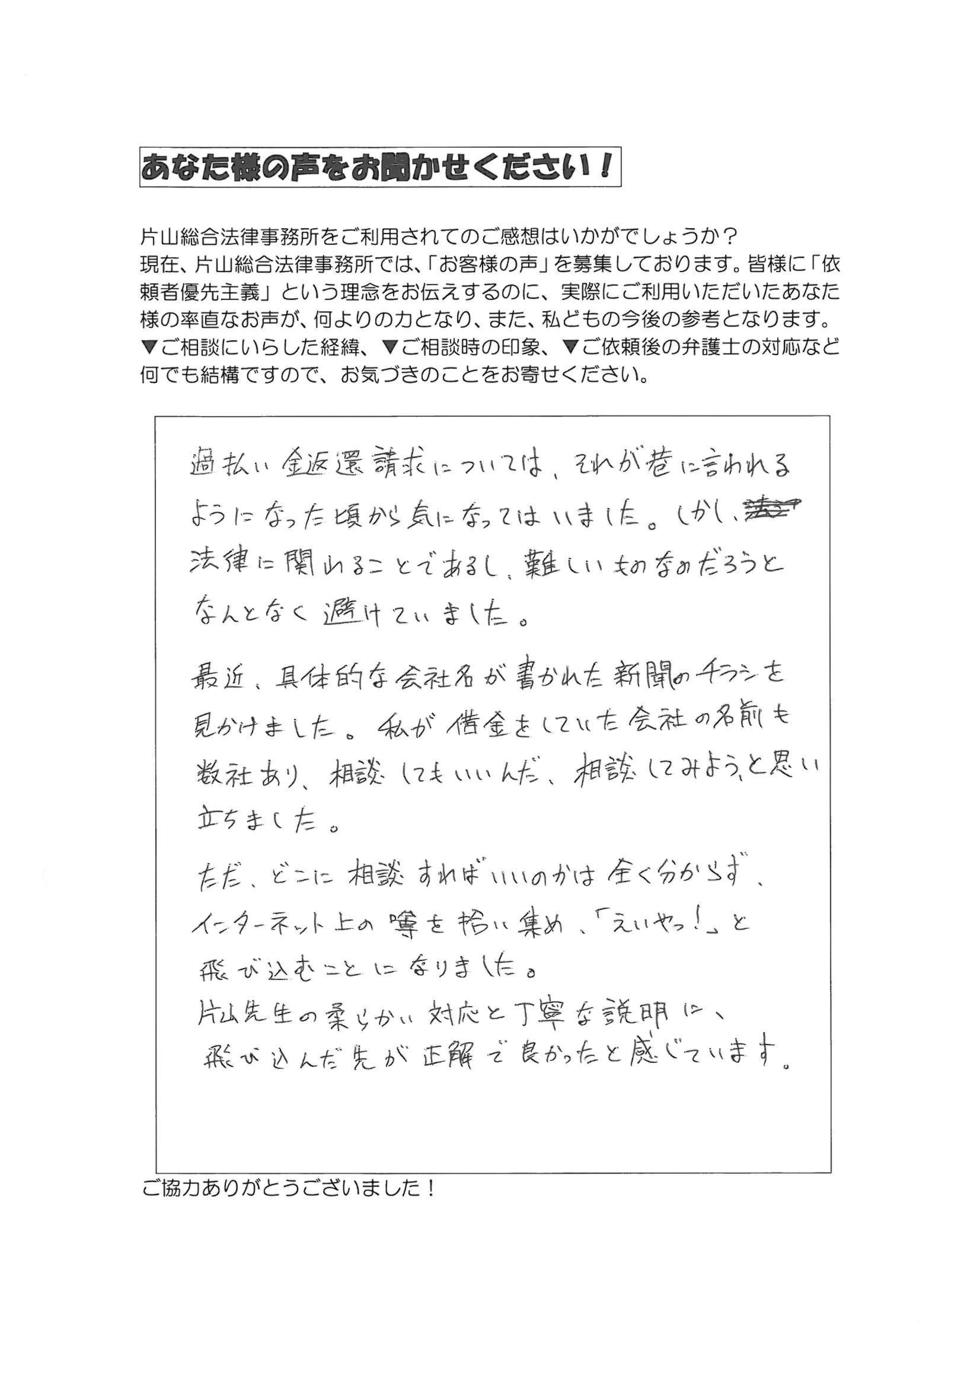 あなた様の声をお聞かせください！
片山総合法律事務所をご利用されてのご感想はいかがでしょうか？
現在、片山総合法律事務所では、「お客様の声」を募集しております。皆様に「依
頼者優先主義」という理念をお伝えするのに、実際にご利用いただいたあなた
様の率直なお声が、何よりの力となり、また、私どもの今後の参考となります。
▼ご相談にいらした経緯、▼ご相談時の印象、▼ご依頼後の弁護士の対応など
何でも結構ですので、お気づきのことをお寄せください。
過払い金返還請求については、それが巷に言われる
ようになった頃から気になってはいました。しかし、
法律に関わることであるし、難しいものなのだろうと
なんとなく避けていました。
最近、具体的な会社名が書かれた新聞のチラシを
見かけました。私が借金をしていた会社の名前も
数社あり、相談してもいいんだ、相談してみよう、と思い
立ちました。
ただ、どこに相談すればいいのかは全く分からず、
インターネット上の噂を拾い集め、「えいやっ！」と
飛び込むことになりました。
片山先生の柔らかい対応と丁寧な説明に、
飛び込んだ先が正解で良かったと感じています。
ご協力ありがとうございました！